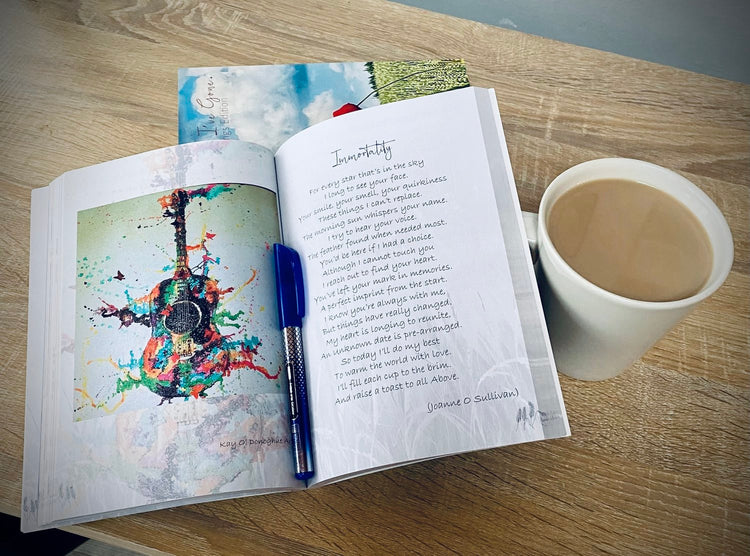 I've Gone.
Edition
Immortality
For every star that's in the sky
I long to see your face.
Your smile, your smell, your quirkiness
These things I can't replace.
The morning sun whispers your name.
I try to hear your voice.
The feather found when needed most.
You'd be here if I had a choice.
Although I cannot touch you
I reach out to find your heart.
You've left your mark in memories.
A perfect imprint from the start.
I know you're always with me.
But things have really changed.
My heart is longing to reunite,
An unknown date is pre-arranged.
So today I'll do my best
To warm the world with love.
I'll fill each cup to the brim.
And raise a toast to all Above.
(Joanne O Sullivan)
Kay O' Donoghue